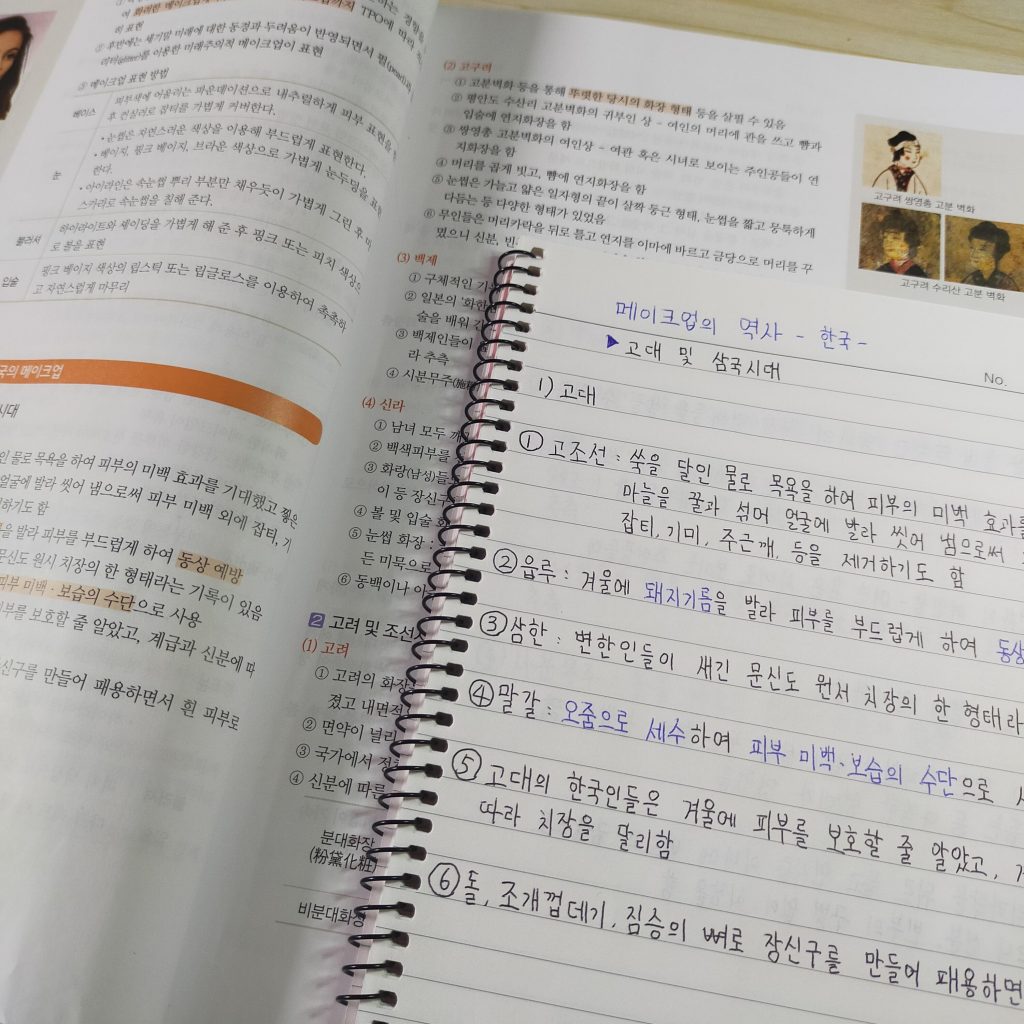 화려한 메이크업
까지 TPO에 따라
히 표현
② 후반에는 세기말 미래에 대한 동경과 두려움이 반영되면서 펄(pearl)과
를 이용한 미래주의적 메이크업이 표현
③ 메이크업 표현 방법
베이스
피부색에 어울리는 파운데이션으로 내추럴하게 피부 표현을
후 컨실러로 잡티를 가볍게 커버한다.
눈
• 눈썹은 자연스러운 색상을 이용해 부드럽게 표현한다.
• 베이지, 핑크 베이지, 브라운 색상으로 가볍게 눈두덩을 표현
한다.
• 아이라인은 속눈썹 뿌리 부분만 채우듯이 가볍게 그린 후 마
스카라로 속눈썹을 칠해 준다.
블러셔
하이라이트와 셰이딩을 가볍게 해 준 후 핑크 또는 피치 색상으
로 볼을 표현
입술
핑크 베이지 색상의 립스틱 또는 립글로스를 이용하여 촉촉하
고 자연스럽게 마무리
국의 메이크업
시대
인 물로 목욕을 하여 피부의 미백 효과를 기대했고 찧은
얼굴에 발라 씻어 냄으로써 피부 미백 외에 잡티, 기
하기도 함
을 발라 피부를 부드럽게 하여 동상 예방
문신도 원시 치장의 한 형태라는 기록이 있음
피부 미백·보습의 수단으로 사용
피부를 보호할 줄 알았고, 계급과 신분에 따
신구를 만들어 패용하면서 흰 피부로
(2) 고구려
① 고분벽화 등을 통해 뚜렷한 당시의 화장 형태 등을 살필 수 있음
② 평안도 수산리 고분벽화의 귀부인 상 - 여인의 머리에 관을 쓰고 뺨과
입술에 연지화장을 함
③ 쌍영총 고분벽화의 여인상 - 여관 혹은 시녀로 보이는 주인공들이 연
지화장을 함
④ 머리를 곱게 빗고, 뺨에 연지화장을 함
⑤ 눈썹은 가늘고 얇은 일자형의 끝이 살짝 둥근 형태, 눈썹을 짧고 뭉툭하게
다듬는 등 다양한 형태가 있었음
⑥ 무인들은 머리카락을 뒤로 틀고 연지를 이마에 바르고 금당으로 머리를 꾸
몄으니 신분, 빈
고구려 쌍영총 고분 벽화
고구려 수리산 고분 벽화
(3) 백제
① 구체적인 기
② 일본의 '화한
술을 배워 간
③ 백제인들이
라 추측
④ 시분무주(施粉
(4) 신라
① 남녀 모두 깨
② 백색피부를
③ 화랑(남성)들
이 등 장신구
④ 볼 및 입술 화
⑤ 눈썹 화장 :
든 미묵으로
⑥ 동백이나 아
2 고려 및 조선
(1) 고려
① 고려의 화장
졌고 내면적
② 면약이 널리
③ 국가에서 정
④ 신분에 따른
분대화장
(粉黛化粧)
비분대화장
메이크업의 역사 - 한국 -
▶ 고대 및 삼국시대
No.
1) 고대
① 고조선 : 쑥을 달인 물로 목욕을 하여 피부의 미백 효과를
마늘을 꿀과 섞어 얼굴에 발라 씻어 냄으로써
잡티, 기미, 주근깨, 등을 제거하기도 함
② 읍루 : 겨울에 돼지기름을 발라 피부를 부드럽게 하여 동상
③ 삼한 : 변한인들이 새긴 문신도 원서 치장의 한 형태라
④ 말갈 : 오줌으로 세수하여 피부 미백·보습의 수단으로
⑤ 고대의 한국인들은 겨울에 피부를 보호할 줄 알았고,
따라 치장을 달리함
⑥ 돌, 조개껍데기, 짐승의 뼈로 장신구를 만들어 패용하면